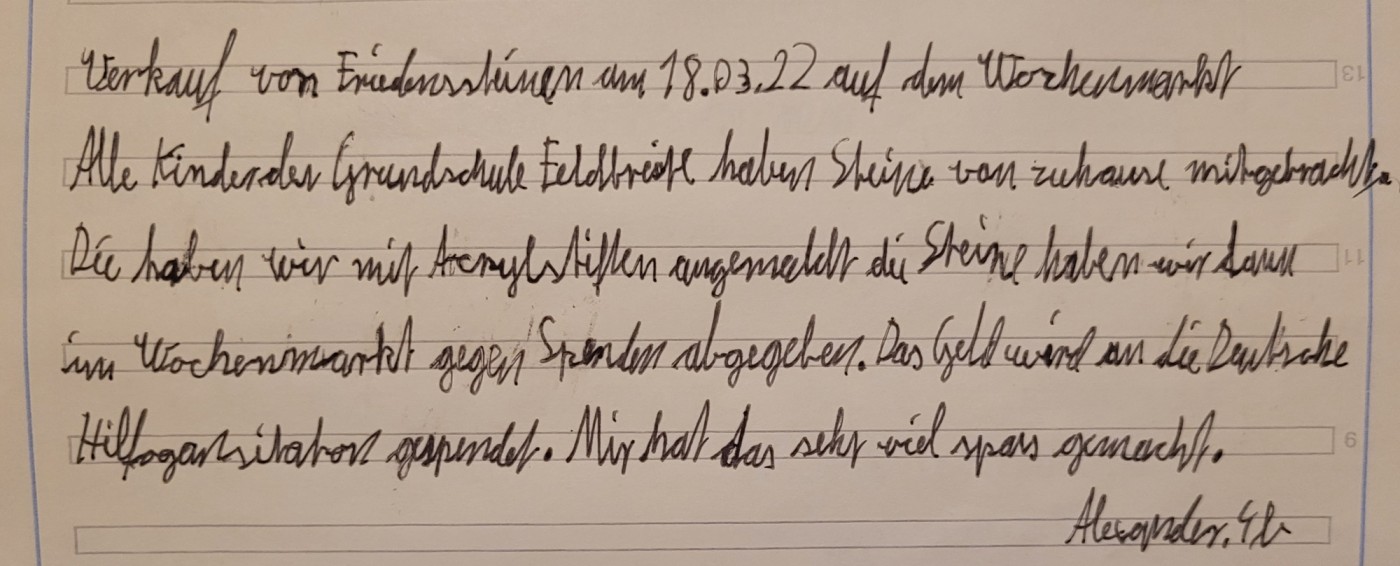 Verkauf von Friedenssteinen am 18.03.22 auf dem Wochenmarkt
Alle Kinder der Grundschule Feldbreite haben Steine von zuhause mitgebracht.
Die haben wir mit Acrylstiften angemahlt die Steine haben wir dann
im Wochenmarkt gegen Spenden abgegeben. Das Geld wird an die Deutsche
Hilfsogansitation gespendet. Mir hat das sehr viel spass gemacht.
Alexander. 4b
13
11
9